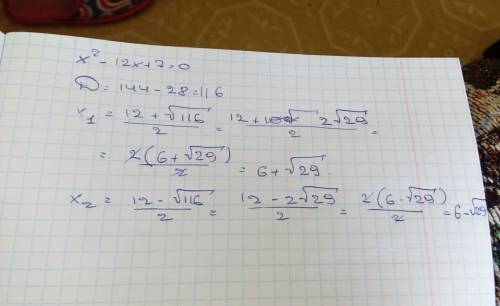 x² - 12x + 7 = 0
D = 144 - 28 = 116
x₁ = (12 + √116)/2 = (12 + 2√29)/2 =
= 2(6 + √29)/2 = 6 + √29.
x₂ = (12 - √116)/2 = (12 - 2√29)/2 = 2(6 - √29)/2 = 6 - √29